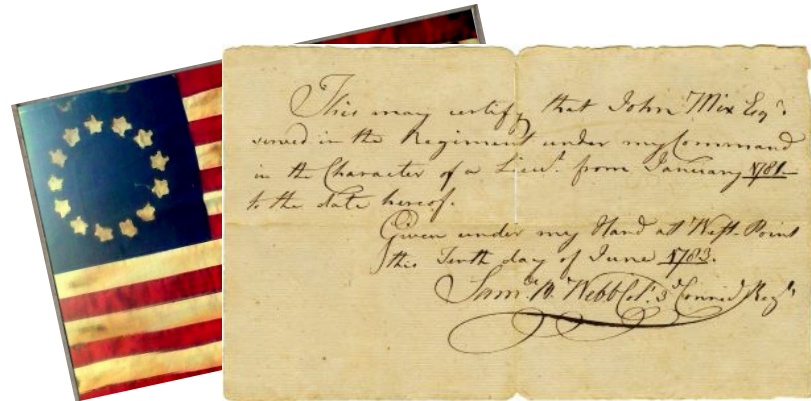 This may certify that John Mix Esqr.
served in the Regiment under my Command
in the Character of a Lieut. from January 1781
to the date hereof.
Given under my Hand at West-Point
this Tenth day of June 1783.
Saml. B. Webb Col. 3d Connect Regt.